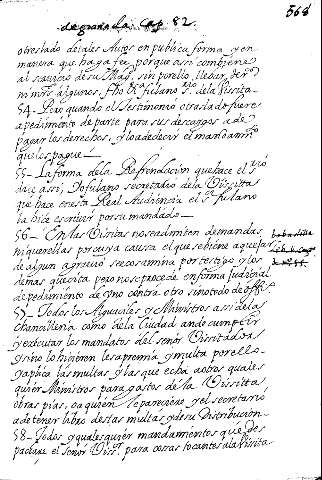 de granada Cap. 82.
368
otreslado de tales Autos en publica forma, y en
manera que haga fee, porque assi combiene
al seruicio de su Mag. sin por ello lleuar der.os
ni mrs. algunos, fho Vt.a fulano s.rio de la Vissita -
54 - Pero quando el Testimonio otraslado fuere
a pedimiento de parte para sus descargos a de
pagar los derechos, y lo a de decir el mandam.to
que les pague -
55 - La forma de la Refrendacion que hace el
dice assi, Yo fulano secretario de la Vissitta
que hace en esta Real Audiencia el S.r fulano
la hice escriuir por su mandado -
56 - En las Visitas no se admiten demandas,
ni querellas por cuya causa el que se biene a quejar
de algun agrauio se examina por testigo y los
demas que cita, pero no se procede en forma Judicial
de pedimiento de uno contra otro sino todo de off.o
Bobadilla
57 - Todos los Alguaciles y Ministros assi de la
Chancilleria como de la Ciudad an de cumplir
y executar los mandatos del señor Vissitador
y sino lo hicieren les apremia y multa por ello
y aplica las multas, y las que echa a otros quales
quier Ministros para gastos de la Vissitta,
obras pias, o a quien le pareciere y el secretario
a de tener libro destas multas y de su Distribucion -
58 - Todos y quales quier mandamientos que des
pachara el señor Viss.or para cosas tocantes a la Visita